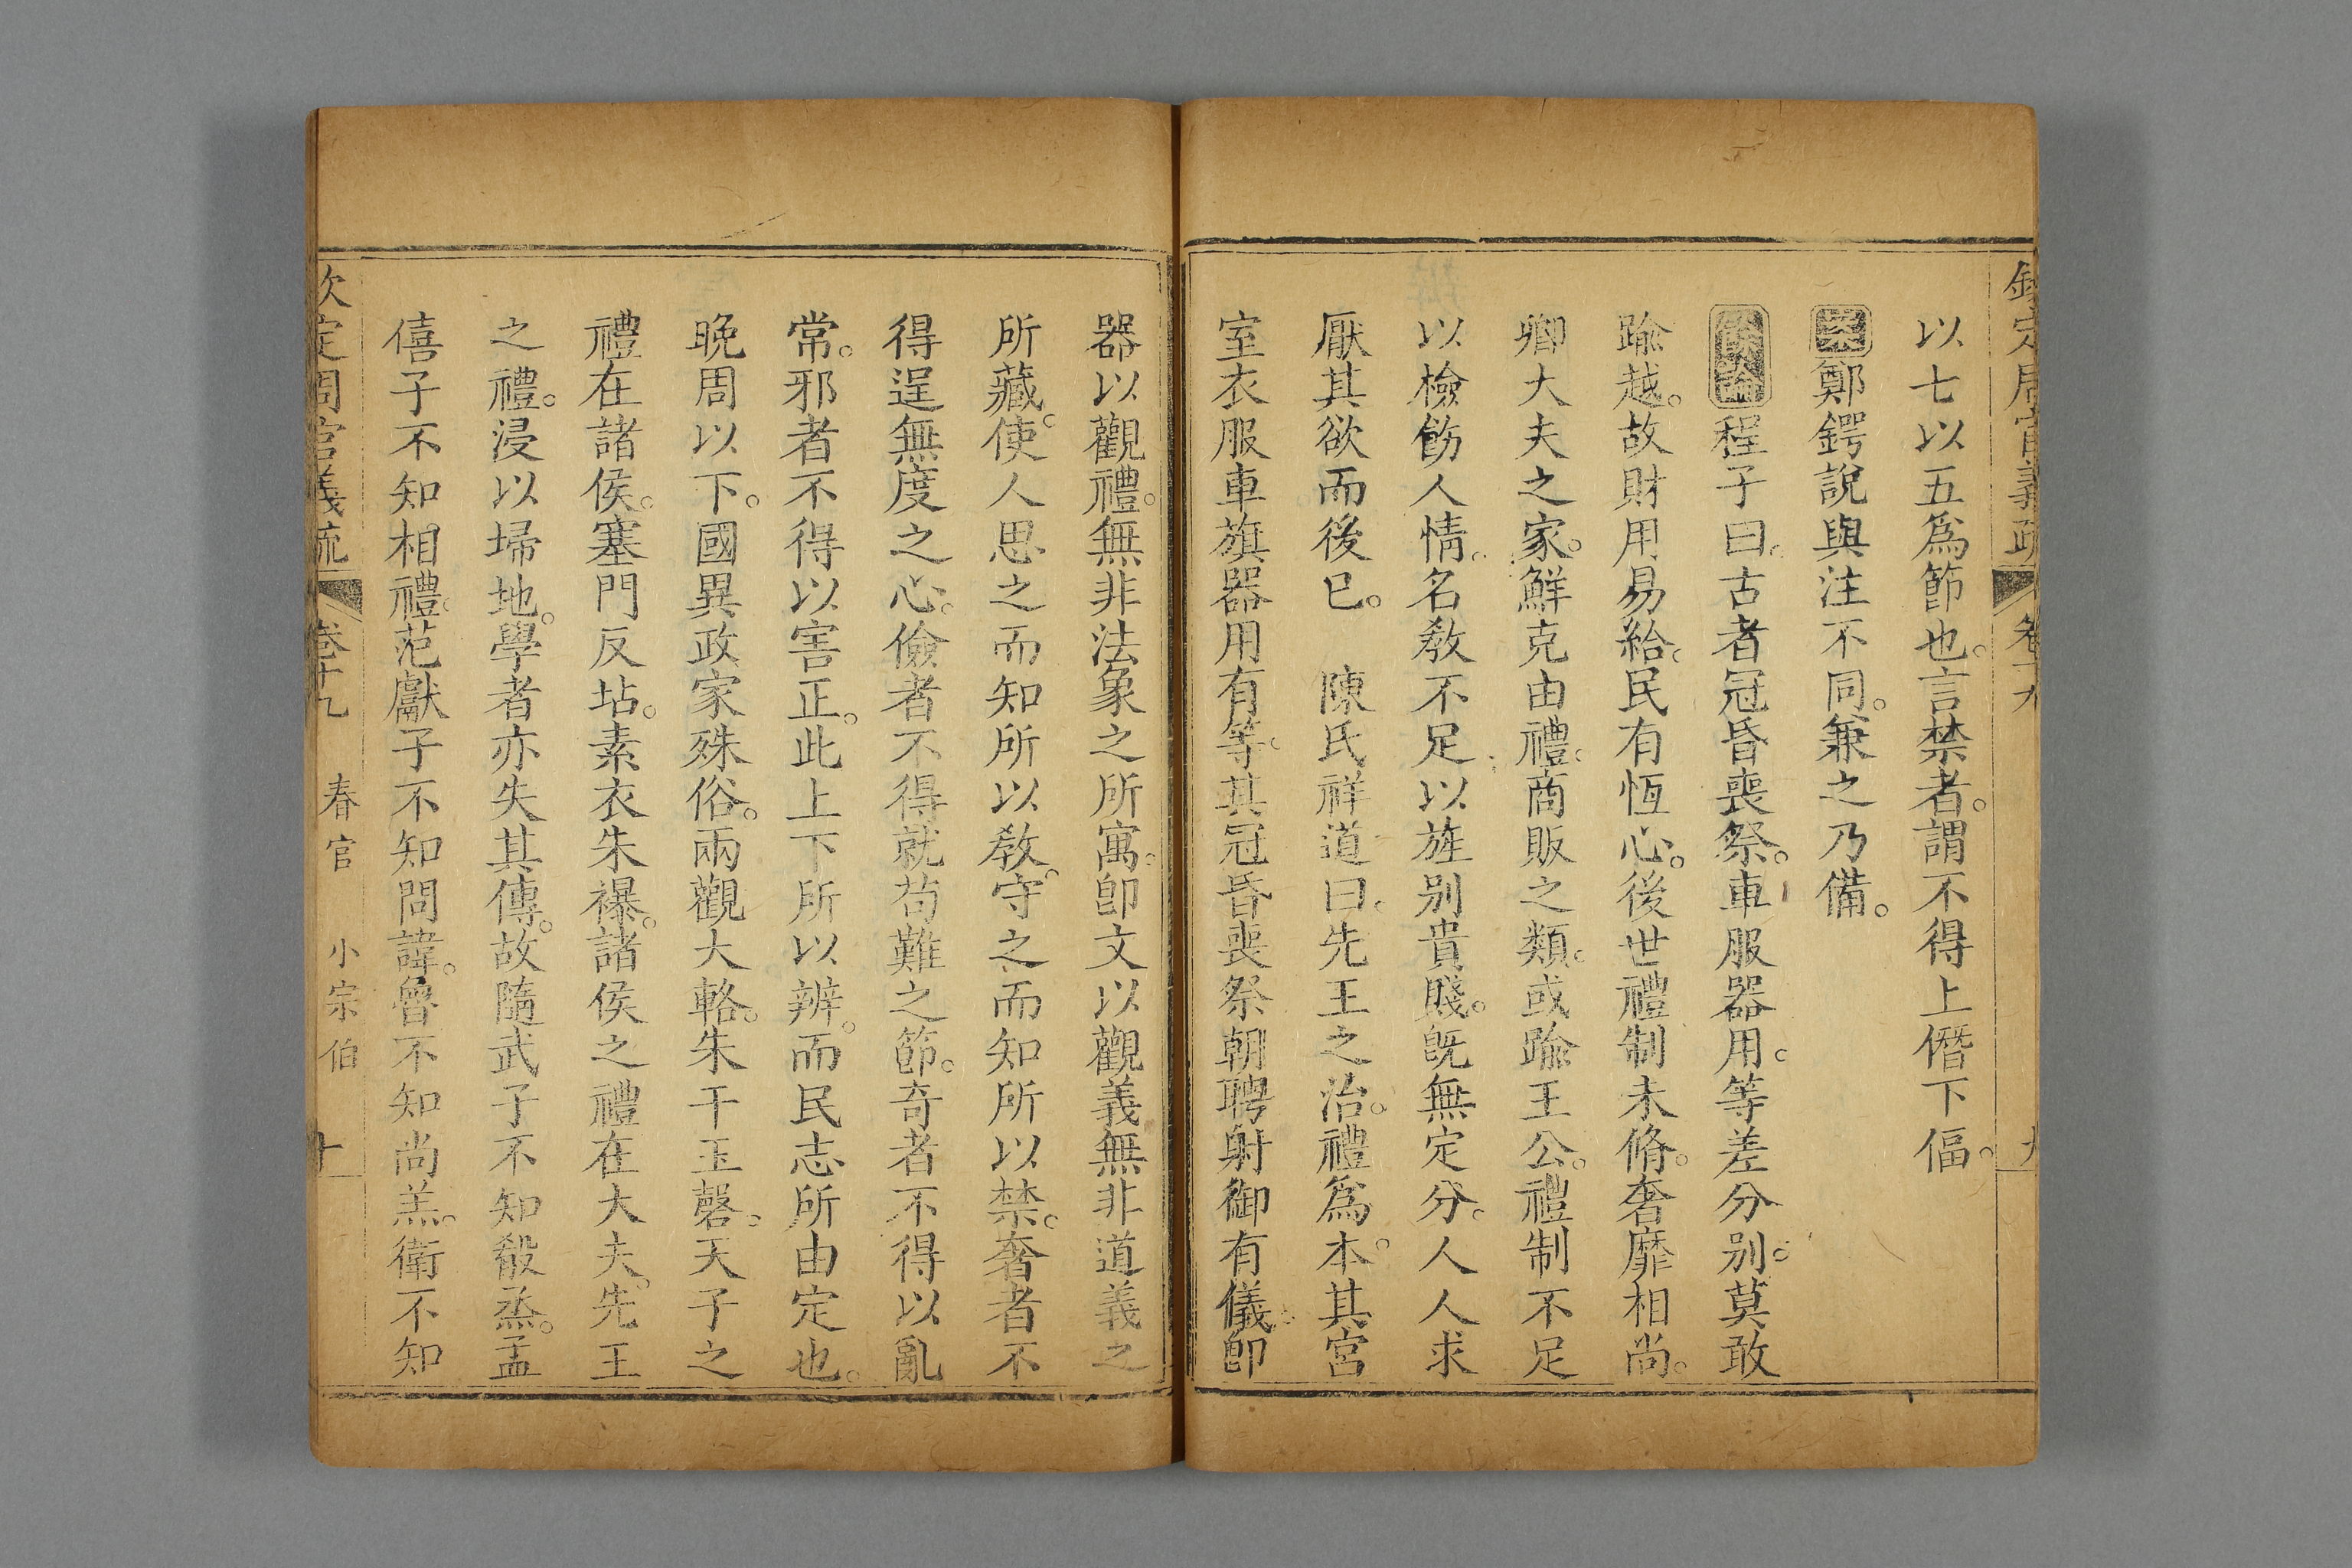 欽定周官義疏 卷十九 九
以七以五爲節也。言禁者。謂不得上僭下偪。
案鄭鍔說與注不同。兼之乃備。
餘論程子曰。古者冠昏喪祭。車服器用。等差分别。莫敢
踰越。故財用易給。民有恆心。後世禮制未脩。奢靡相尚。
卿大夫之家。鮮克由禮。商販之類。或踰王公。禮制不足
以檢飭人情。名敎不足以旌别貴賤。旣無定分。人人求
厭其欲而後已。 陳氏祥道曰。先王之治。禮爲本。其宮
室衣服車旗器用有等。其冠昏喪祭朝聘射御有儀。卽
器以觀禮。無非法象之所寓。卽文以觀義無非道義之
所藏。使人思之而知所以敎。守之而知所以禁。奢者不
得逞無度之心。儉者不得就苟難之節。奇者不得以亂
常。邪者不得以害正。此上下所以辨。而民志所由定也。
晚周以下。國異政家殊俗。兩觀大輅。朱干玉磬。天子之
禮在諸侯。塞門反坫。素衣朱襮。諸侯之禮在大夫。先王
之禮。浸以埽地。學者亦失其傳。故隨武子不知殽烝。孟
僖子不知相禮。范獻子不知問諱。魯不知尚羔。衛不知
欽定周官義疏 卷十九 春官 小宗伯 十